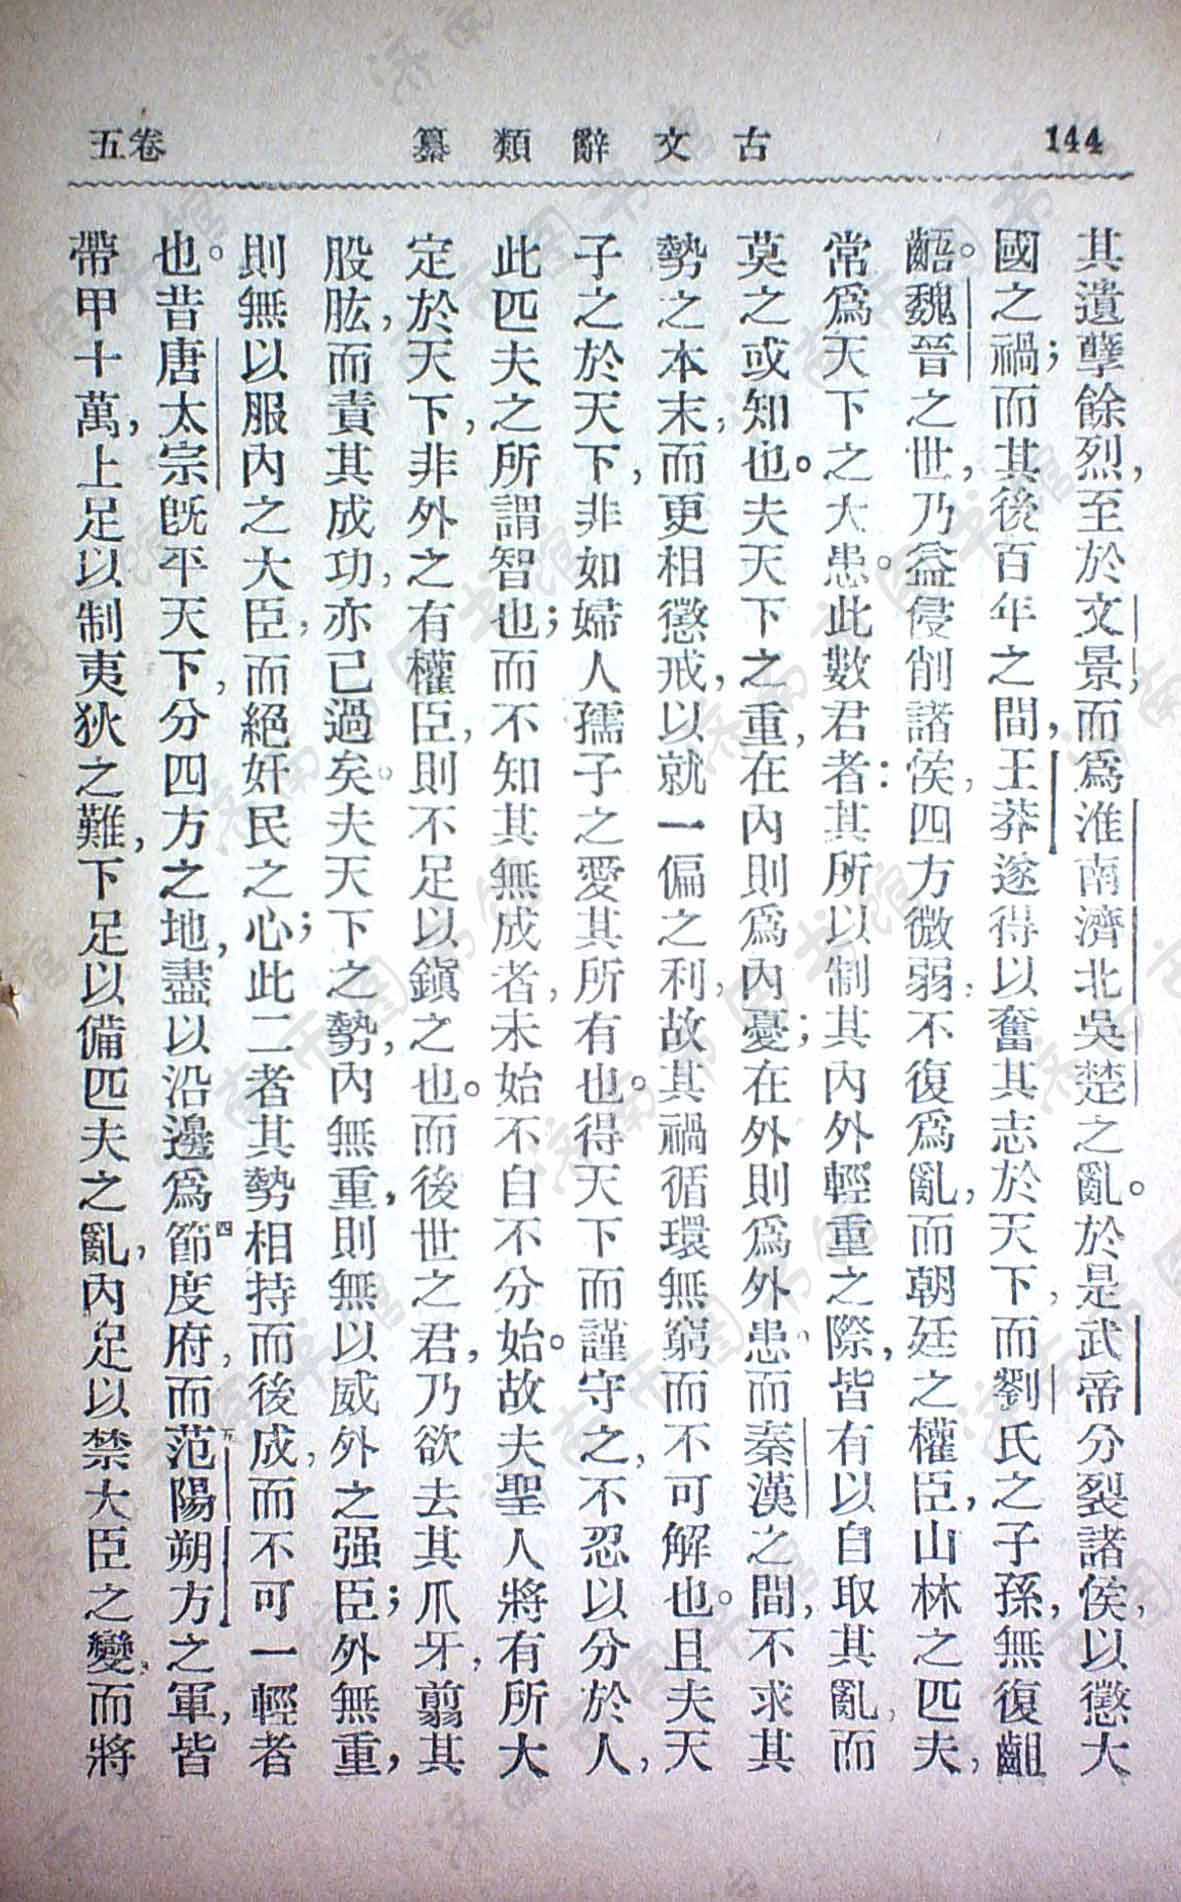 144
古文辭類纂
卷五
其遺孽餘烈，至於文景；而爲淮南濟北吳楚之亂。於是武帝分裂諸侯，以懲大
國之禍；而其後百年之間，王莽遂得以奮其志於天下，而劉氏之子孫，無復齟
齬。魏晉之世，乃益侵削諸侯，四方微弱，不復爲亂，而朝廷之權臣，山林之匹夫，
常爲天下之大患。此數君者：其所以制其內外輕重之際，皆有以自取其亂，而
莫之或知也。夫天下之重，在內則爲內憂；在外則爲外患，而秦漢之間，不求其
勢之本末，而更相懲戒，以就一偏之利，故其禍循環無窮而不可解也。且夫天
子之於天下，非如婦人孺子之愛其所有也。得天下而謹守之，不忍以分於人，
此匹夫之所謂智也；而不知其無成者，未始不自不分始。故夫聖人將有所大
定於天下，非外之有權臣，則不足以鎮之也。而後世之君，乃欲去其爪牙，翦其
股肱，而責其成功，亦已過矣。夫天下之勢，內無重，則無以威外之强臣；外無重，
則無以服內之大臣，而絕奸民之心；此二者其勢相持而後成，而不可一輕者
也。昔唐太宗旣平天下，分四方之地，盡以沿邊爲節四度府，而范陽五朔方之軍，皆
帶甲十萬，上足以制夷狄之難，下足以備匹夫之亂，內足以禁大臣之變，而將